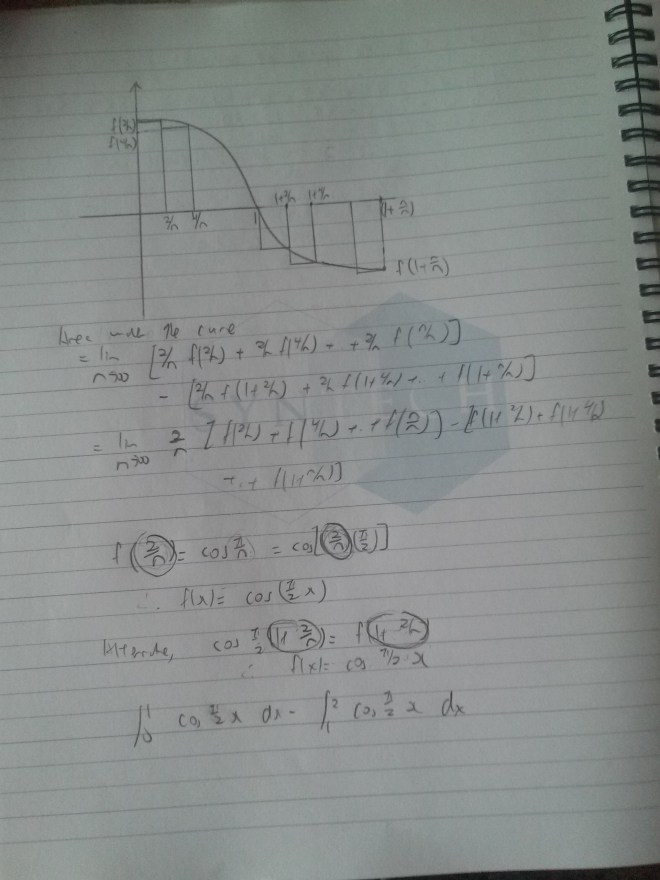 f(2/n)
f(4/n)
2/n 4/n 1 1+2/n 1+4/n (1+n/n)
f(1+n/n)
Area under the curve
= lim n→∞ [2/n f(2/n) + 2/n f(4/n) + .. + 2/n f(n/n)]
- [2/n f(1+2/n) + 2/n f(1+4/n) + .. + f(1+n/n)]
= lim n→∞ 2/n [f(2/n) + f(4/n) + .. + f(n/n)] - [f(1+2/n) + f(1+4/n)
+ .. + f(1+n/n)]
SYNTECH
f(2/n) = cos π/n = cos[(2/n)(π/2)]
∴ f(x) = cos(π/2 x)
cos π/2 (1+ 2/n) = f(1+ 2/n)
∴ f(x) = cos π/2 x
∫₀¹ cos π/2 x dx - ∫₁² cos π/2 x dx